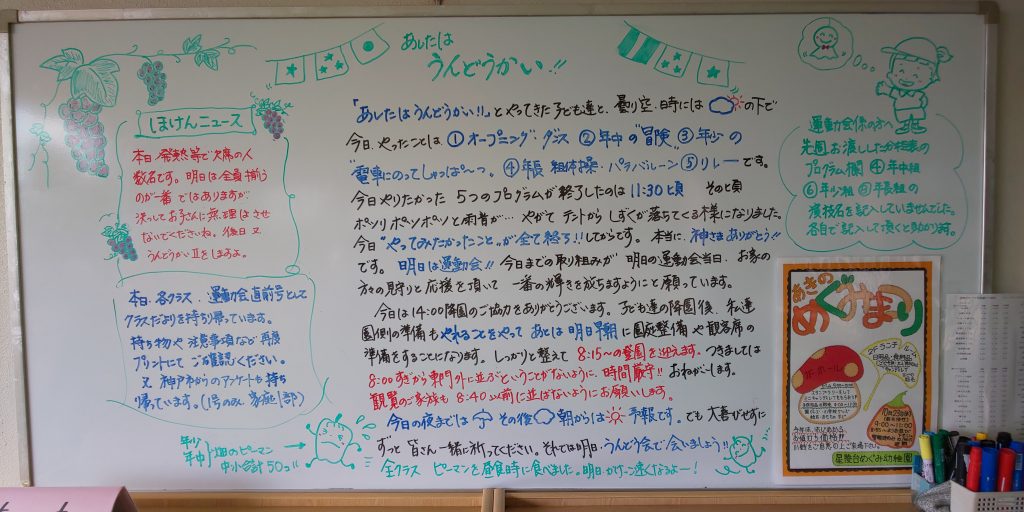 あしたは
うんどうかい!!
ほけんニュース
本日、発熱等で欠席の人
数名です。明日は全員揃う
のが一番 ではありますが
決してお子さんに無理はさせ
ないでくださいね。後日 又
うんどうかいⅡをしますよ。
本日、各クラス、運動会直前号として
クラスだよりを持ち帰っています。
持ち物や 注意事項など 再度
プリントにて ご確認ください。
又 神戸市からのアンケートも持ち
帰っています。(1号のみ、家庭1部)
年少
年中
畑のピーマン
中小合計50コ!!
「あしたはうんどうかい!!」とやってきた子ども達と、曇り空、時には の下で
今日、やったことは ①オープニング・ダンス ②年中の"冒険" ③年少の
"電車にのってしゅっぱ〜つ。④年長 組体操・パラバルーン ⑤リレーです。
今日やりたかった 5つのプログラムが終了したのは 11:30頃 その頃
ポツリ ポツンポツンと雨音が… やがて テントから しずくが落ちてくる様になりました。
今日"やってみたかったこと"が全て終了!!してからです。本当に、神さまありがとう!!
です。 明日は運動会!! 今日までの取り組みが 明日の運動会当日、お家の
方々の守りと応援を頂いて 一番の輝きを放ちますようにと願っています。
今日は14:00降園のご協力をありがとうございます。子ども達の降園後、私達
園側の準備もやれることをやって あとは 明日早朝に園庭整備や観客席の
準備をすることになります。しっかりと整えて 8:15〜の登園を迎えます。つきましては
8:00すぎから専門外に並ぶということがないように、時間厳守!! おねがいします。
観覧のご家族も 8:40以前に並ばないようにお願いします。
今日の夜までは その後 朝からは 予報です。でも 大喜びせずに
ずっと 皆さん一緒に祈ってください。それでは明日、うんどう会で会いましょう!!
全クラス ピーマンを昼食時に食べました。明日、かけっこ速くなるよー!
運動会係の方へ
先週お渡ししたお当表の
プログラム欄 ④年中組
⑥年少組 ⑧年長組の
演技名を記入していませんでした。
各自で記入して頂くと助かります。
あきの
めぐみまつり
2Fホール
2Fランチルーム
日用品・食料品
10月23日
9:00〜11:00
お値打ち価格!!
星陵台めぐみ幼稚園